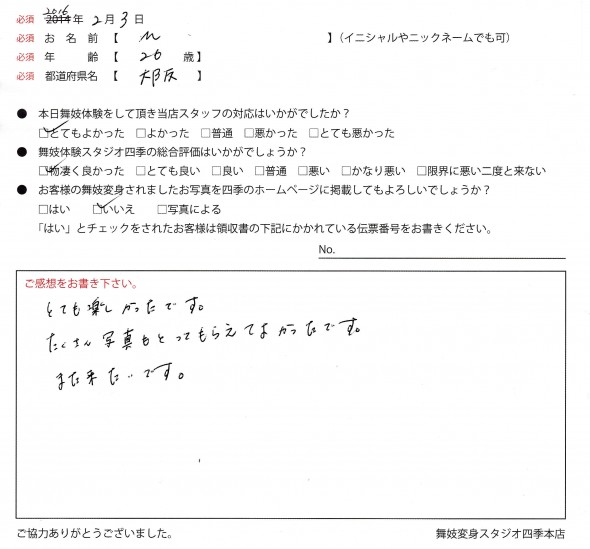 2016
必須 2014年 2月 3日
必須 お名前【 M 】(イニシャルやニックネームでも可)
必須 年齢【 26 歳】
必須 都道府県名【 大阪 】
● 本日舞妓体験をして頂き当店スタッフの対応はいかがでしたか?
□とてもよかった □よかった □普通 □悪かった □とても悪かった
● 舞妓体験スタジオ四季の総合評価はいかがでしょうか?
□物凄く良かった □とても良い □良い □普通 □悪い □かなり悪い □限界に悪い二度と来ない
● お客様の舞妓変身されましたお写真を四季のホームページに掲載してもよろしいでしょうか?
□はい □いいえ □写真による
「はい」とチェックをされたお客様は領収書の下記にかかれている伝票番号をお書きください。
No.
ご感想をお書き下さい。
とても楽しかったです。
たくさん写真もとってもらえてよかったです。
また来たいです。
ご協力ありがとうございました。
舞妓変身スタジオ四季本店